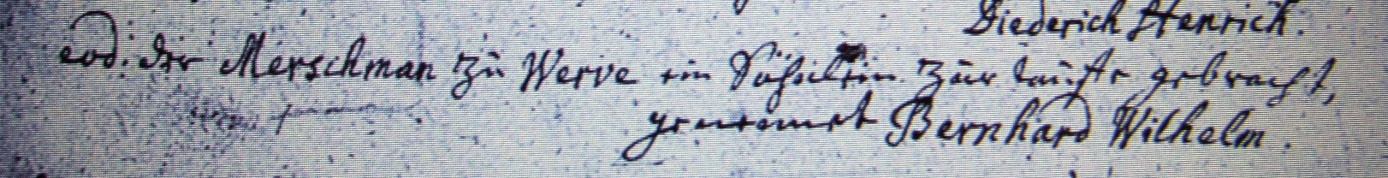 Diederich Henrich.
eod. der Merschman zu Werve ein Söhnlein zur tauffe gebracht,
genennet Bernhard Wilhelm.